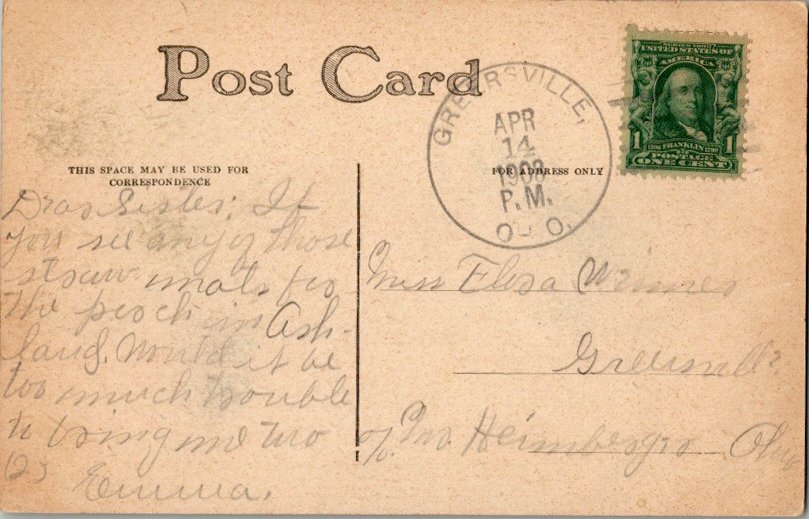 Post Card
UNITED STATES OF
AMERICA
1 1706 FRANKLIN 1790 1
POSTAGE
ONE CENT
GREERSVILLE,
APR
14
1908
P.M.
O. O.
THIS SPACE MAY BE USED FOR
CORRESPONDENCE
FOR ADDRESS ONLY
Dear Sister; If
you see any of those
straw mats for
the porch in Ash-
land. Would it be
too much trouble
to bring me two
(2)
Emma.
Miss Flora Winner
Greersville
c/o Heimberger Ohio